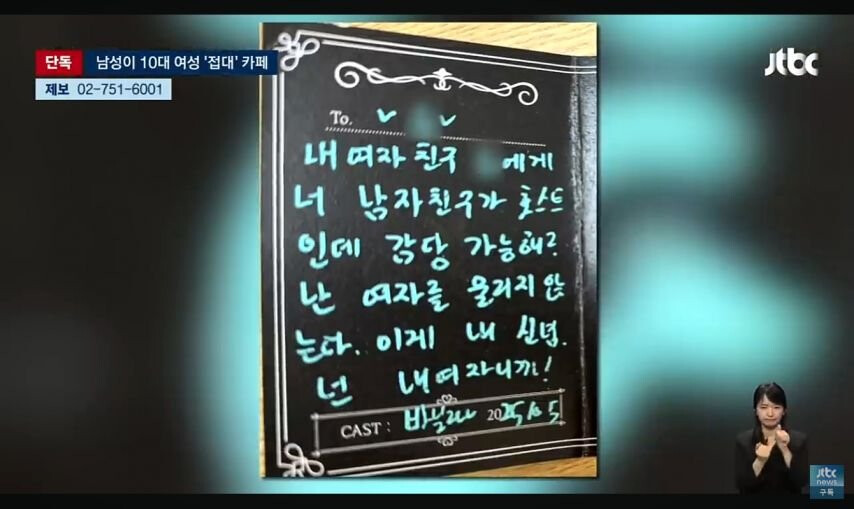 단독 남성이 10대 여성 '접대' 카페
제보 02-751-6001
jtbc
To.
내 여자친구 에게
너 남자친구가 호스트
인데 감당 가능해?
난 여자를 울리지 않
는다. 이게 내 신념.
넌 내여자니까!
CAST : 바닐라 2025
jtbc
news
구독